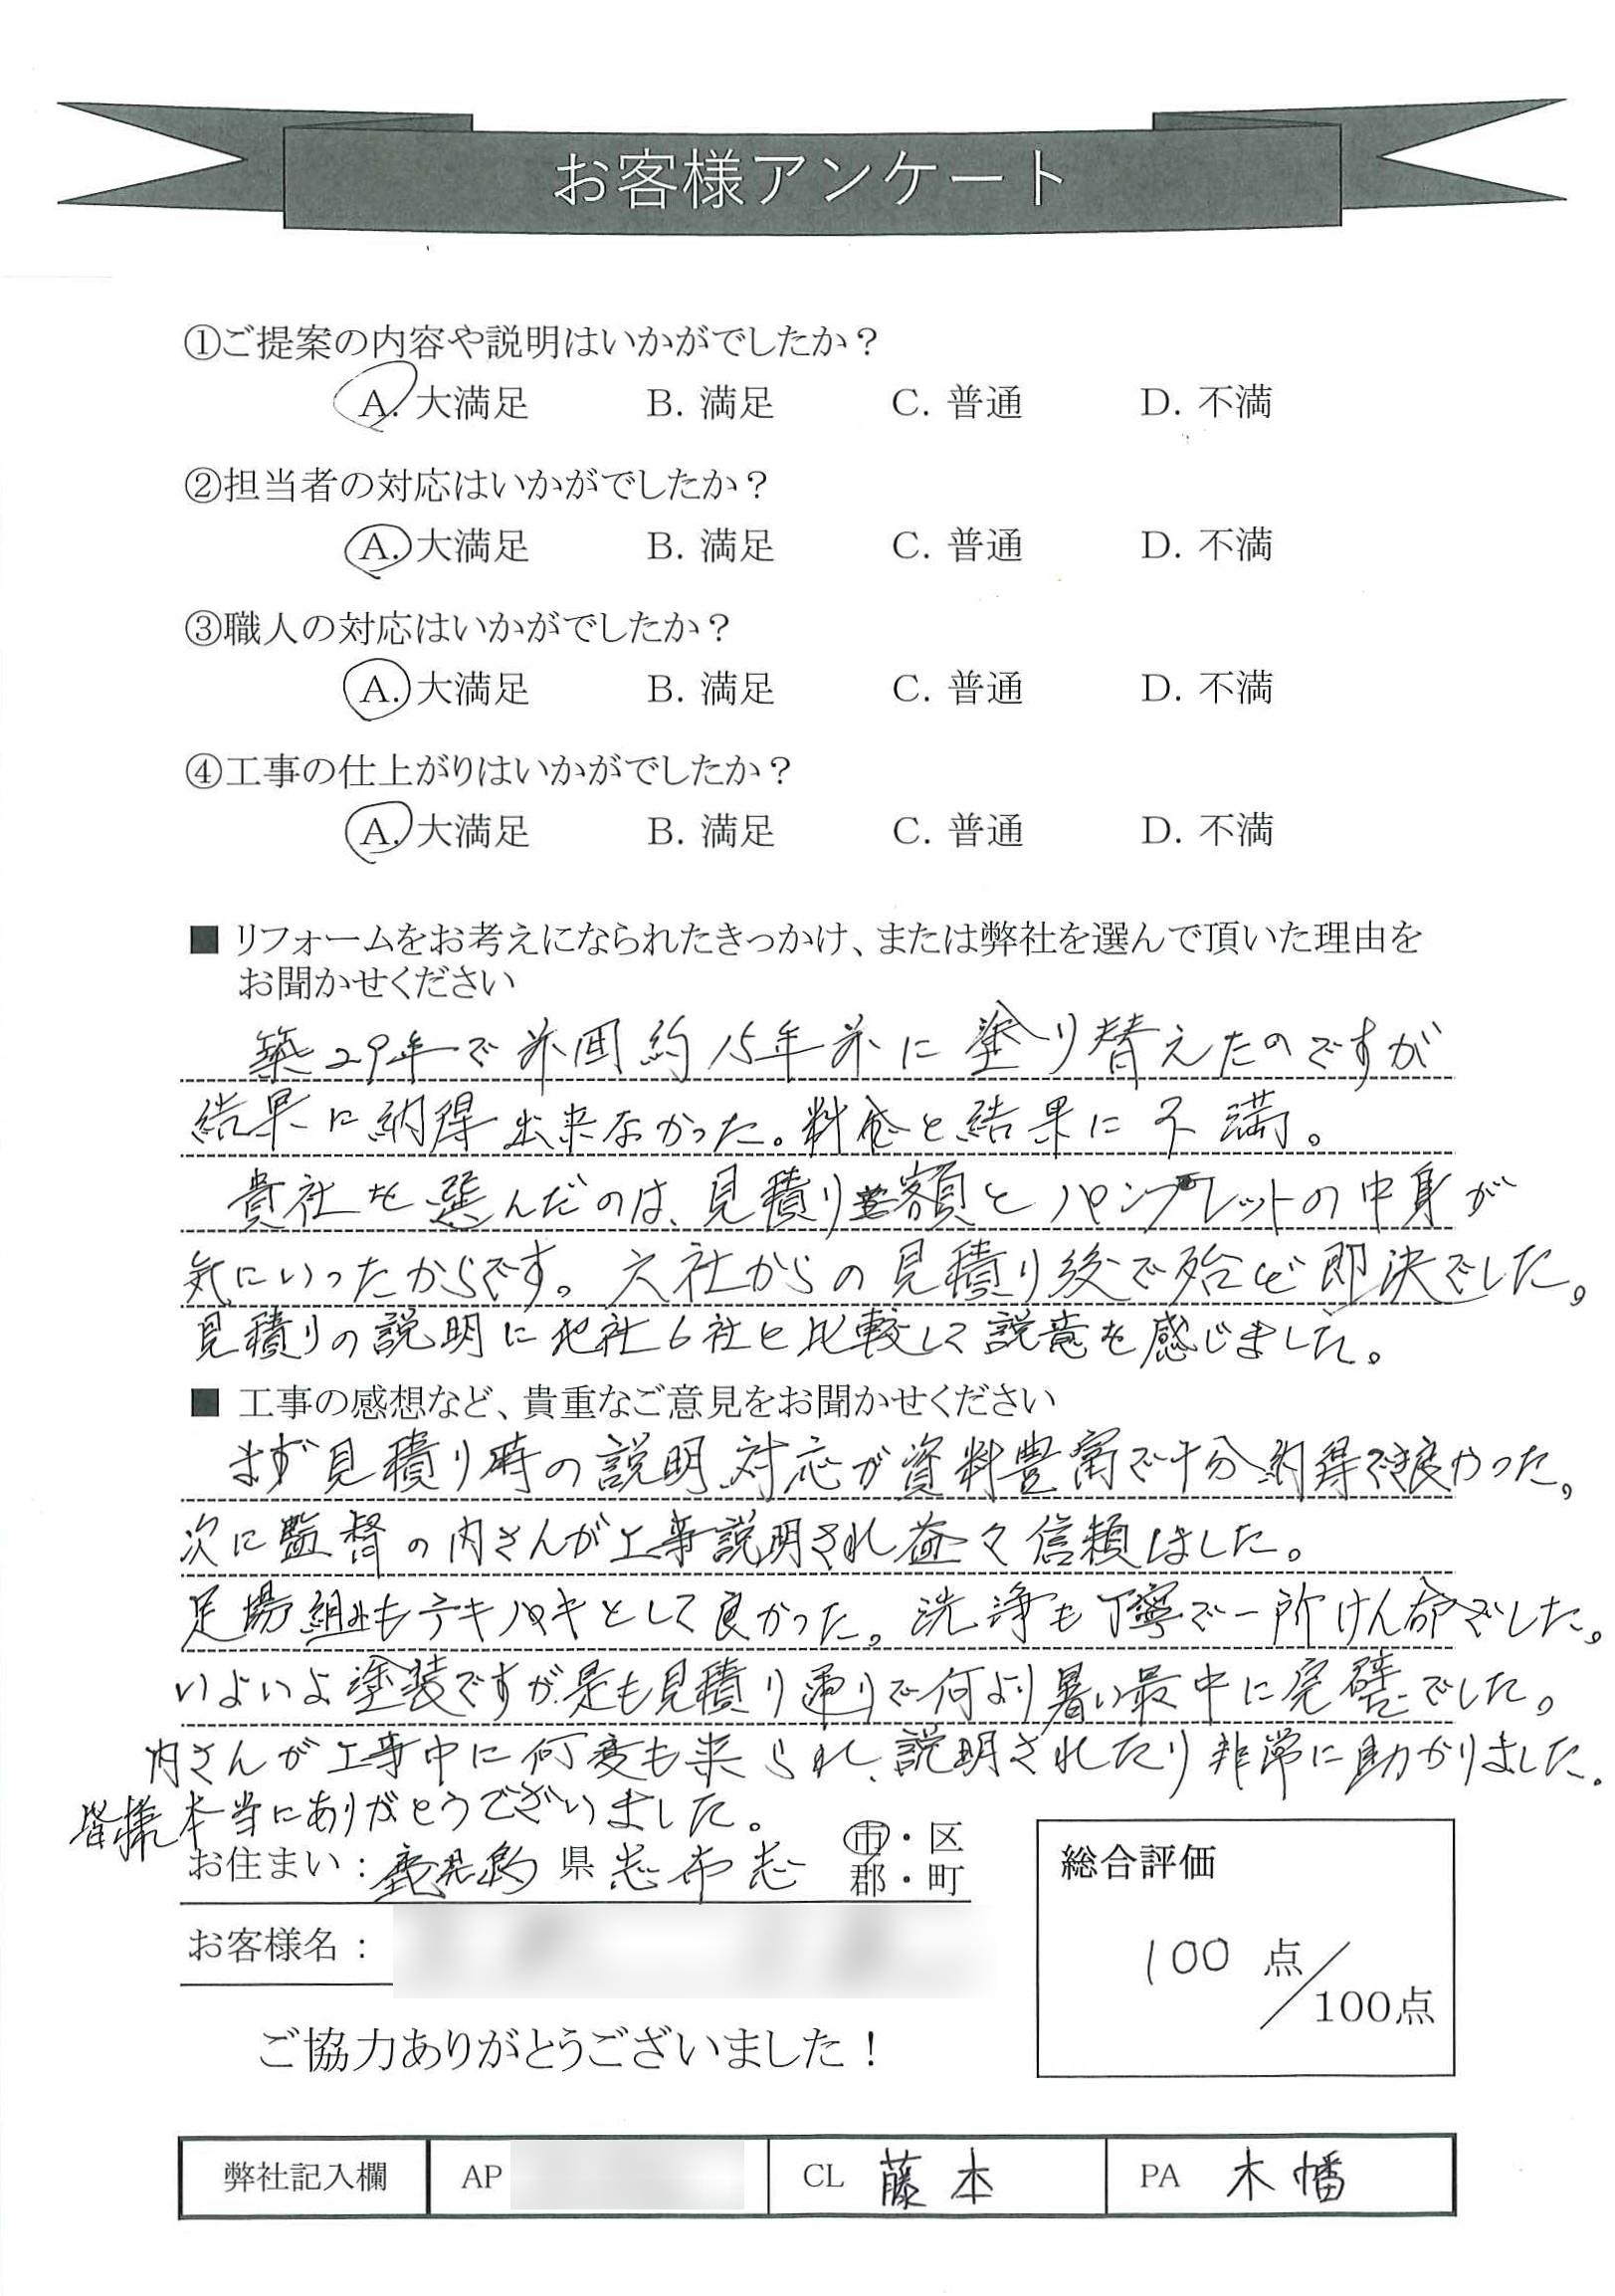 お客様アンケート
①ご提案の内容や説明はいかがでしたか？
A. 大満足 B. 満足 C. 普通 D. 不満
②担当者の対応はいかがでしたか？
A. 大満足 B. 満足 C. 普通 D. 不満
③職人の対応はいかがでしたか？
A. 大満足 B. 満足 C. 普通 D. 不満
④工事の仕上がりはいかがでしたか？
A. 大満足 B. 満足 C. 普通 D. 不満
■ リフォームをお考えになられたきっかけ、または弊社を選んで頂いた理由を
お聞かせください
築29年で前回約15年前に塗り替えたのですが
結果に納得出来なかった。料金と結果に不満。
貴社を選んだのは、見積り額とパンフレットの中身が
気にいったからです。六社からの見積り後で殆ど即決でした。
見積りの説明に他社6社と比較して説意を感じました。
■ 工事の感想など、貴重なご意見をお聞かせください
まず見積り時の説明、対応が資料豊富で十分納得でき良かった。
次に監督の内さんが工事説明され益々信頼しました。
足場組みもテキパキとして良かった。洗浄も丁寧で一所けん命でした。
いよいよ塗装ですが是も見積り通りで何より暑い最中に完璧でした。
内さんが工事中に何度も来られ、説明されたり非常に助かりました。
皆様本当にありがとうございました。
お住まい：鹿児島 県 志布志 市・区
郡・町
お客様名：
総合評価
100 点／100点
ご協力ありがとうございました！
弊社記入欄 AP CL 藤本 PA 木幡